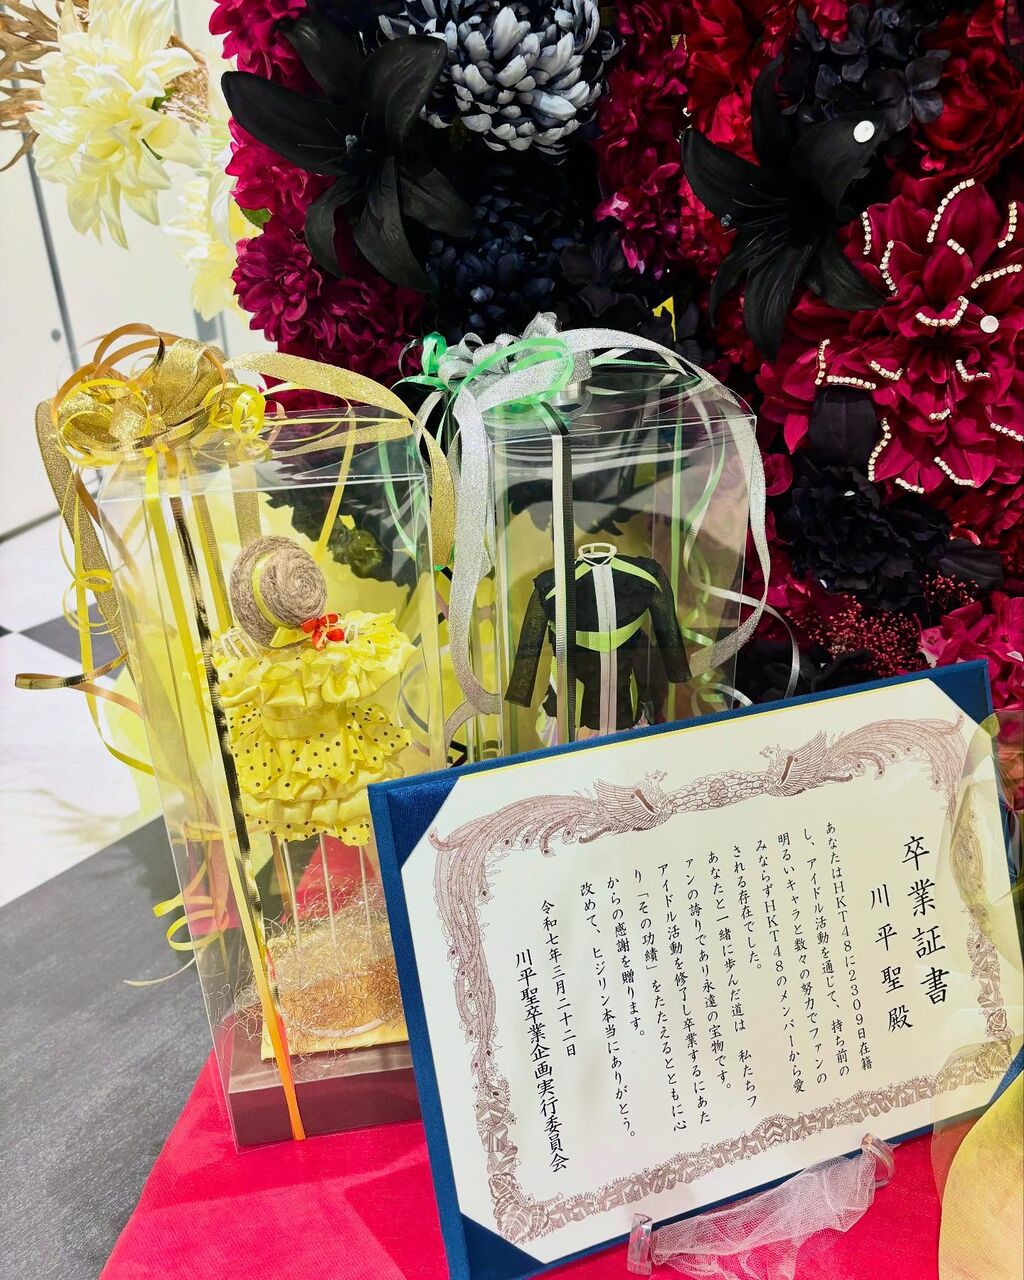 卒業証書
川平聖殿
あなたはHKT48に2309日在籍
し、アイドル活動を通じて、持ち前の
明るいキャラと数々の努力でファンの
みならずHKT48のメンバーから愛
される存在でした。
あなたと一緒に歩んだ道は 私たちフ
ァンの誇りであり永遠の宝物です。
アイドル活動を修了し卒業するにあた
り「その功績」をたたえるとともに心
からの感謝を贈ります。
改めて、ヒジリン本当にありがとう。
令和七年三月二十二日
川平聖卒業企画実行委員会